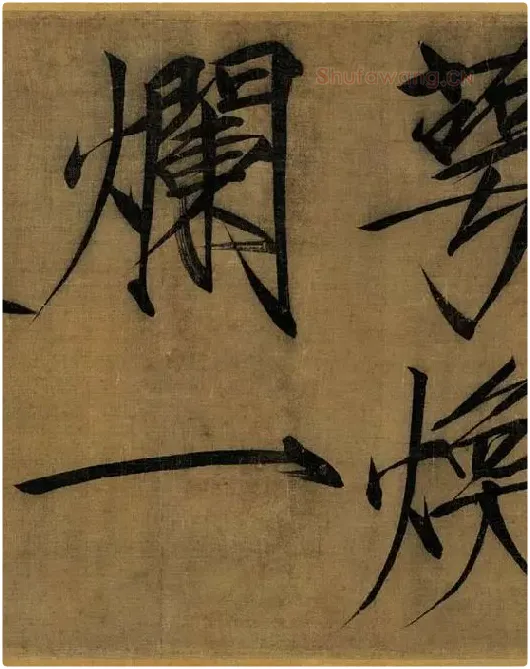 萼煥
爛一
Shufawang.CN